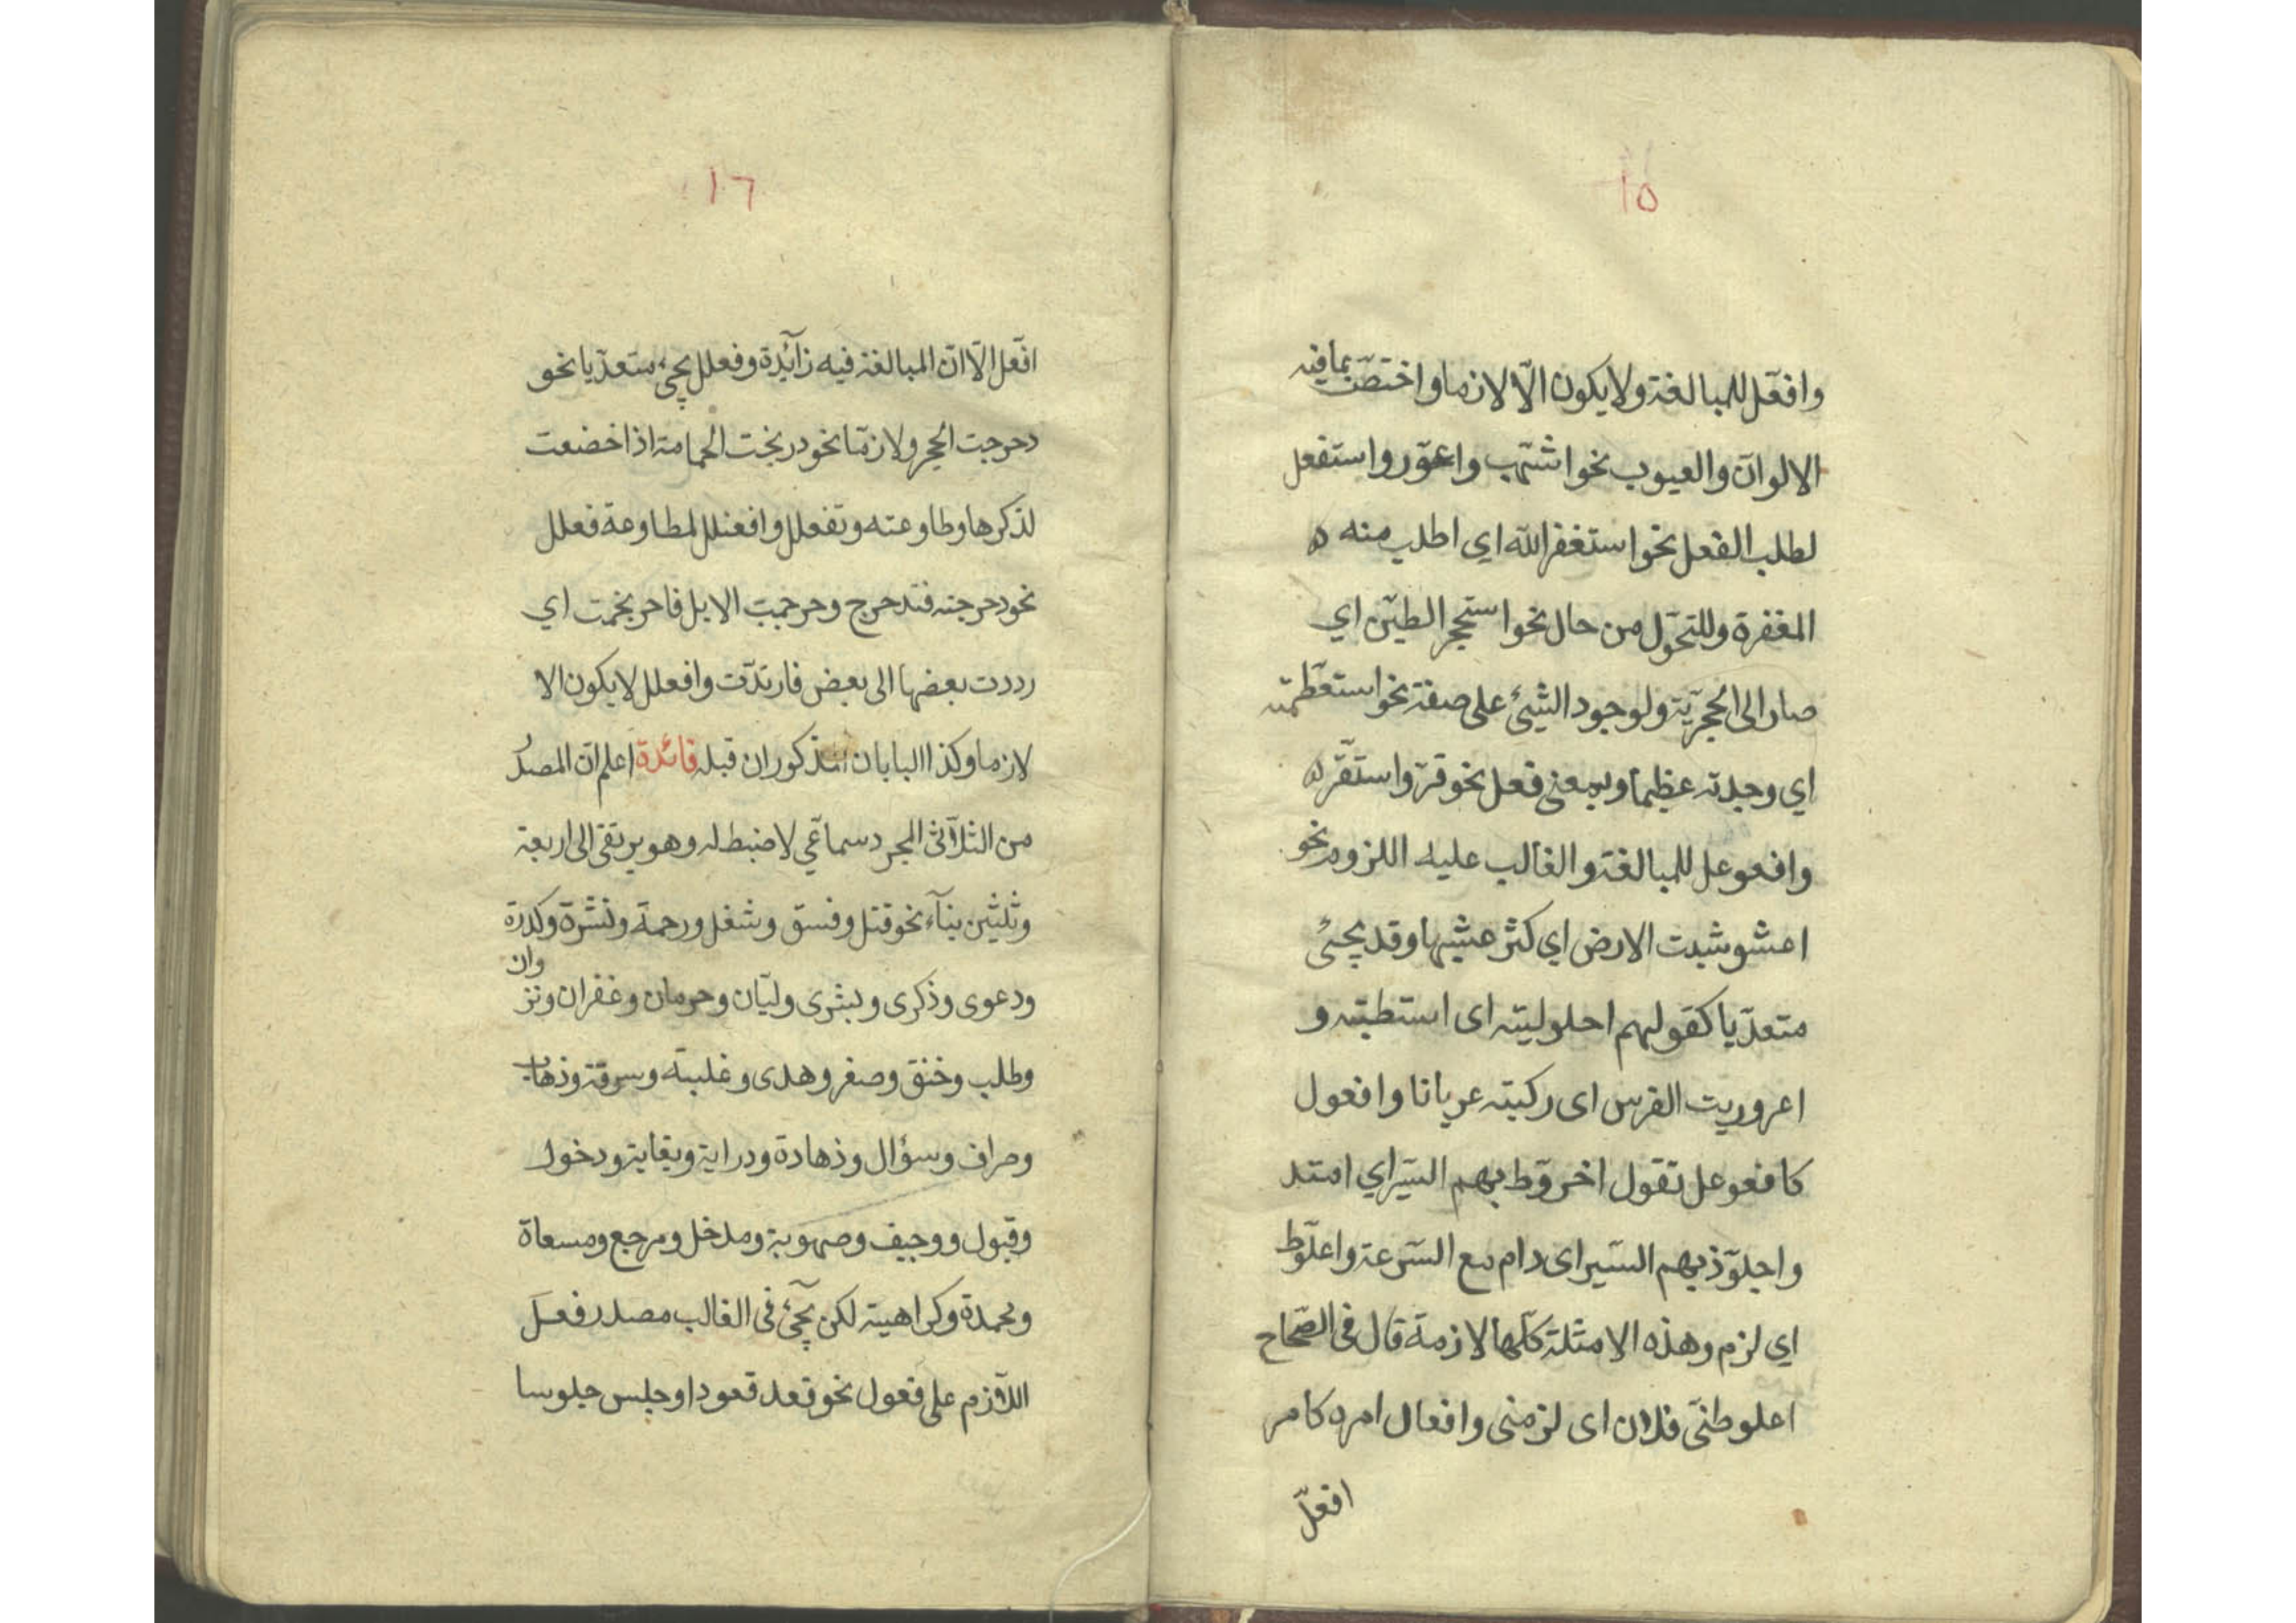 ١٥
وافعّل للمبالغة ولا يكون الّا لازما واختصّت بما فيه
الالوان والعيوب نحو اشهبّ واعورّ واستفعل
لطلب الفعل نحو استغفر الله اي اطلب منه
المغفرة وللتحوّل من حال نحو استحجر الطين اي
صار الى الحجريّة ولوجود الشيئ على صفة نحو استعظمته
اي وجدته عظيما وبمعنى فعل نحو قرّ واستقرّ
وافعوعل للمبالغة والغالب عليه اللزوم نحو
اعشوشبت الارض اي كثر عشبها وقد يجيئ
متعدّيا كقولهم احلوليته اى استطبته و
اعروريت الفرس اى ركبته عريانا وافعول
كافعوعل تقول اخروّط بهم السّير اي امتد
واجلوّذ بهم السّير اى دام مع السّرعة واعلوّط
اي لزم وهذه الامثلة كلّها لازمة قال فى الصّحاح
اعلوطنّى فلان اى لزمنى وافعال امره كامر
افعلّ
١٦
افعّل الّا انّ المبالغة فيه زآئدة وفعلل يجيء متعدّيا نحو
دحرجت الحجر ولازمّا نحو دربخت الحمامة اذا خضعت
لذكرها وطاوعته وتفعلل وافعنلل لمطاوعة فعلل
نحو دحرجته فتدحرج وحرجمت الابل فاحرنجمت اي
رددت بعضها الى بعض فارتدّت وافعلل لا يكون الا
لازما وكذا البابان المذكوران قبله فائدة اعلم انّ المصدر
من الثلآثى المجرد سماعّي لا ضبط له وهو يرتقى الى اربعة
وثلثين بنآء نحو قتل وفسق وشغل ورحمة ونشرة وكدرة
ودعوى وذكرى وبشرى وليّان وحرمان وغفران ونزوان
وطلب وخنق وصغر وهدى وغلبة وسرقة وذهاب
وصراف وسؤال وزهادة ودراية وبغاية ودخول
وقبول ووجيف وصهوبة ومدخل ومرجع ومسعاة
ومحمدة وكراهية لكن يجيئ فى الغالب مصدر فعل
اللآزم على فعول نحو قعد قعودا وجلس جلوسا